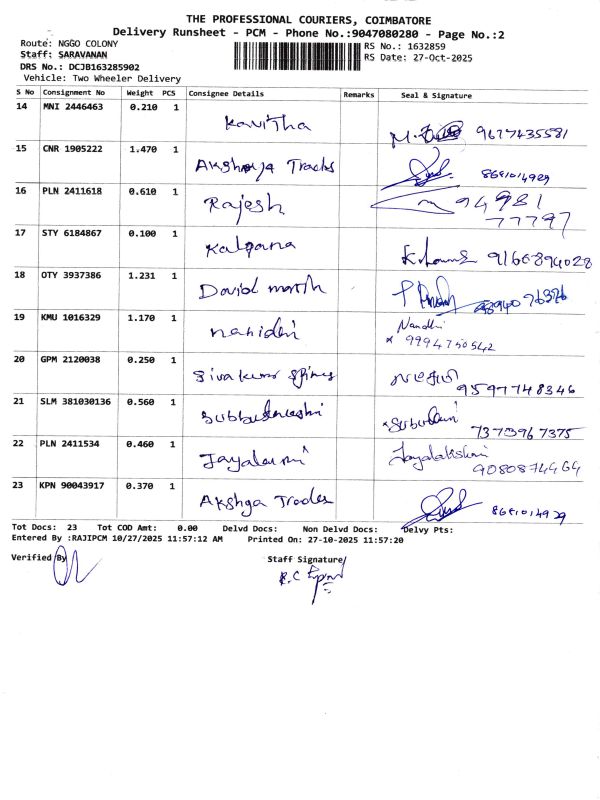 THE PROFESSIONAL COURIERS, COIMBATORE
Delivery Runsheet - PCM - Phone No.:9047080280 - Page No.:2
Route: NGGO COLONY RS No.: 1632859
Staff: SARAVANAN RS Date: 27-Oct-2025
DRS No.: DCJB163285902
Vehicle: Two Wheeler Delivery
S No Consignment No Weight PCS Consignee Details Remarks Seal & Signature
14 MNI 2446463 0.210 1 Kavitha 9677435581
15 CNR 1905222 1.470 1 Akshaya Trades
16 PLN 2411618 0.610 1 Rajesh 94981
77797
17 STY 6184867 0.100 1 Kalpana 9166894028
18 OTY 3937386 1.231 1 David
19 KMU 1016329 1.170 1 Nandhi
9994750542
20 GPM 2120038 0.250 1 Sivakumar 9597748346
21 SLM 381030136 0.560 1 7373967375
22 PLN 2411534 0.460 1 Jayalakshmi
9080874464
23 KPN 90043917 0.370 1 Trades
Tot Docs: 23 Tot COD Amt: 0.00 Delvd Docs: Non Delvd Docs: Delvy Pts:
Entered By :RAJIPCM 10/27/2025 11:57:12 AM Printed On: 27-10-2025 11:57:20
Verified By Staff Signature